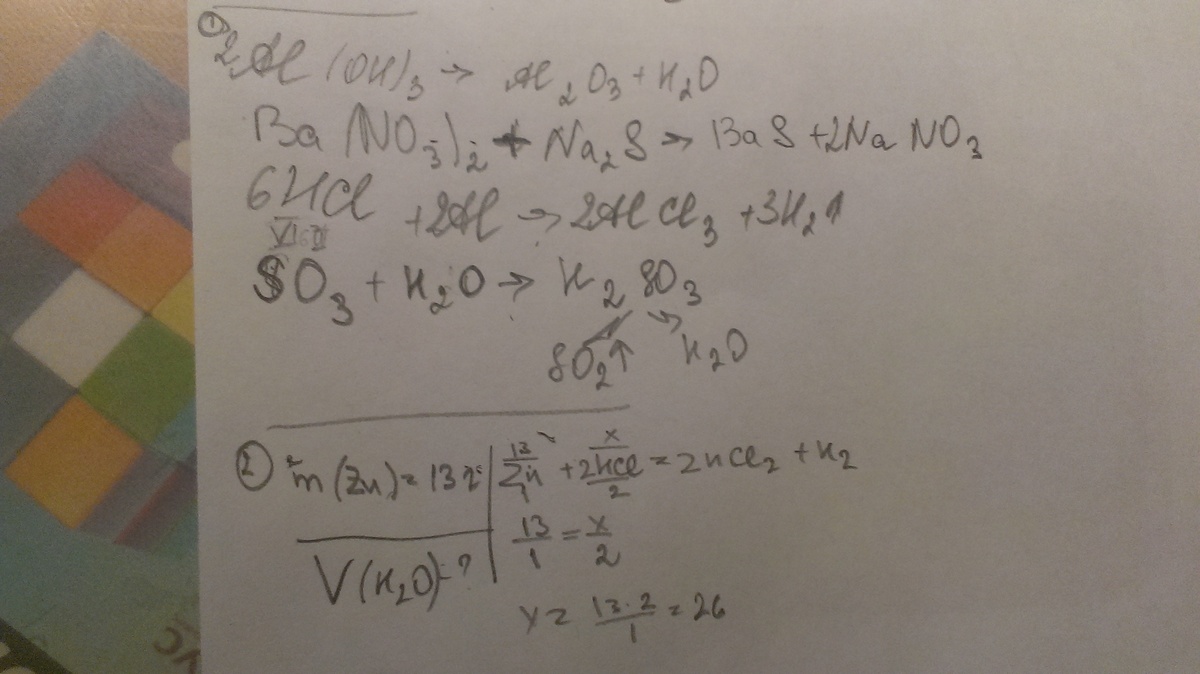 ① 2Al(OH)₃ → Al₂O₃ + H₂O
Ba(NO₃)₂ + Na₂S → BaS + 2NaNO₃
6HCl + 2Al → 2AlCl₃ + 3H₂↑
VI II
SO₃ + H₂O → H₂SO₃
SO₂↑ H₂O
13 x
② m(Zn) = 13 г Zn + 2HCl = ZnCl₂ + H₂
1 2
V(H₂O) - ? 13/1 = x/2
x = 13·2/1 = 26